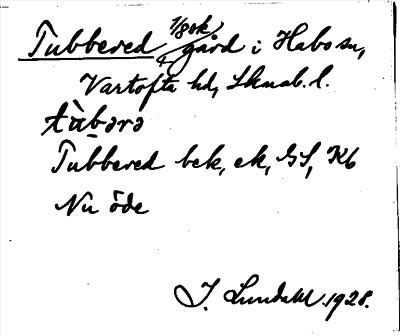 Tubbered 1/8 ok gård i Habo sn,
Vartofta hd, Skarab. l.
tùbərə
Tubbered bek, ek, GS, Kb
Nu öde
J. Lundahl. 1928.